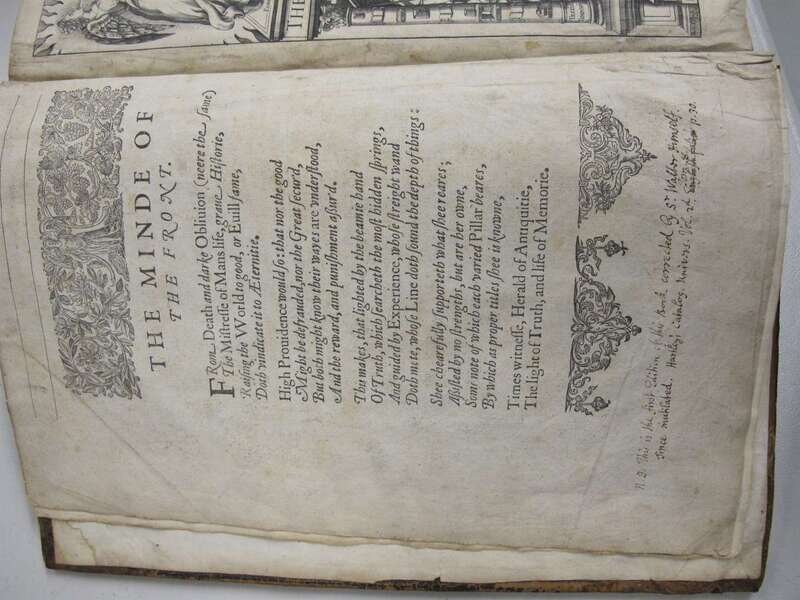 THE MINDE OF
THE FRONT.
FRom Death and darke Obliuion (neere the same)
The Mistresse of Mans life, graue Historie,
Raising the World to good, or Euill fame,
Doth vindicate it to Æternitie.
High Prouidence would so: that nor the good
Might be defrauded, nor the Great secur'd,
But both might know their wayes are vnderstood,
And the reward, and punishment assur'd.
This makes, that lighted by the beamie hand
Of Truth, which searcheth the most hidden springs,
And guided by Experience, whose streight wand
Doth mete, whose Line doth sound the depth of things:
Shee chearefully supporteth what shee reares;
Assisted by no strengths, but are her owne,
Some note of which each varied Pillar beares,
By which as proper titles shee is knowne,
Times witnesse, Herald of Antiquitie,
The light of Truth, and life of Memorie.
N. B. This is the first Edition of this Book, corrected by Sr. Walter himself.
since mutilated. Harleij Catalog. p. 30.
THE